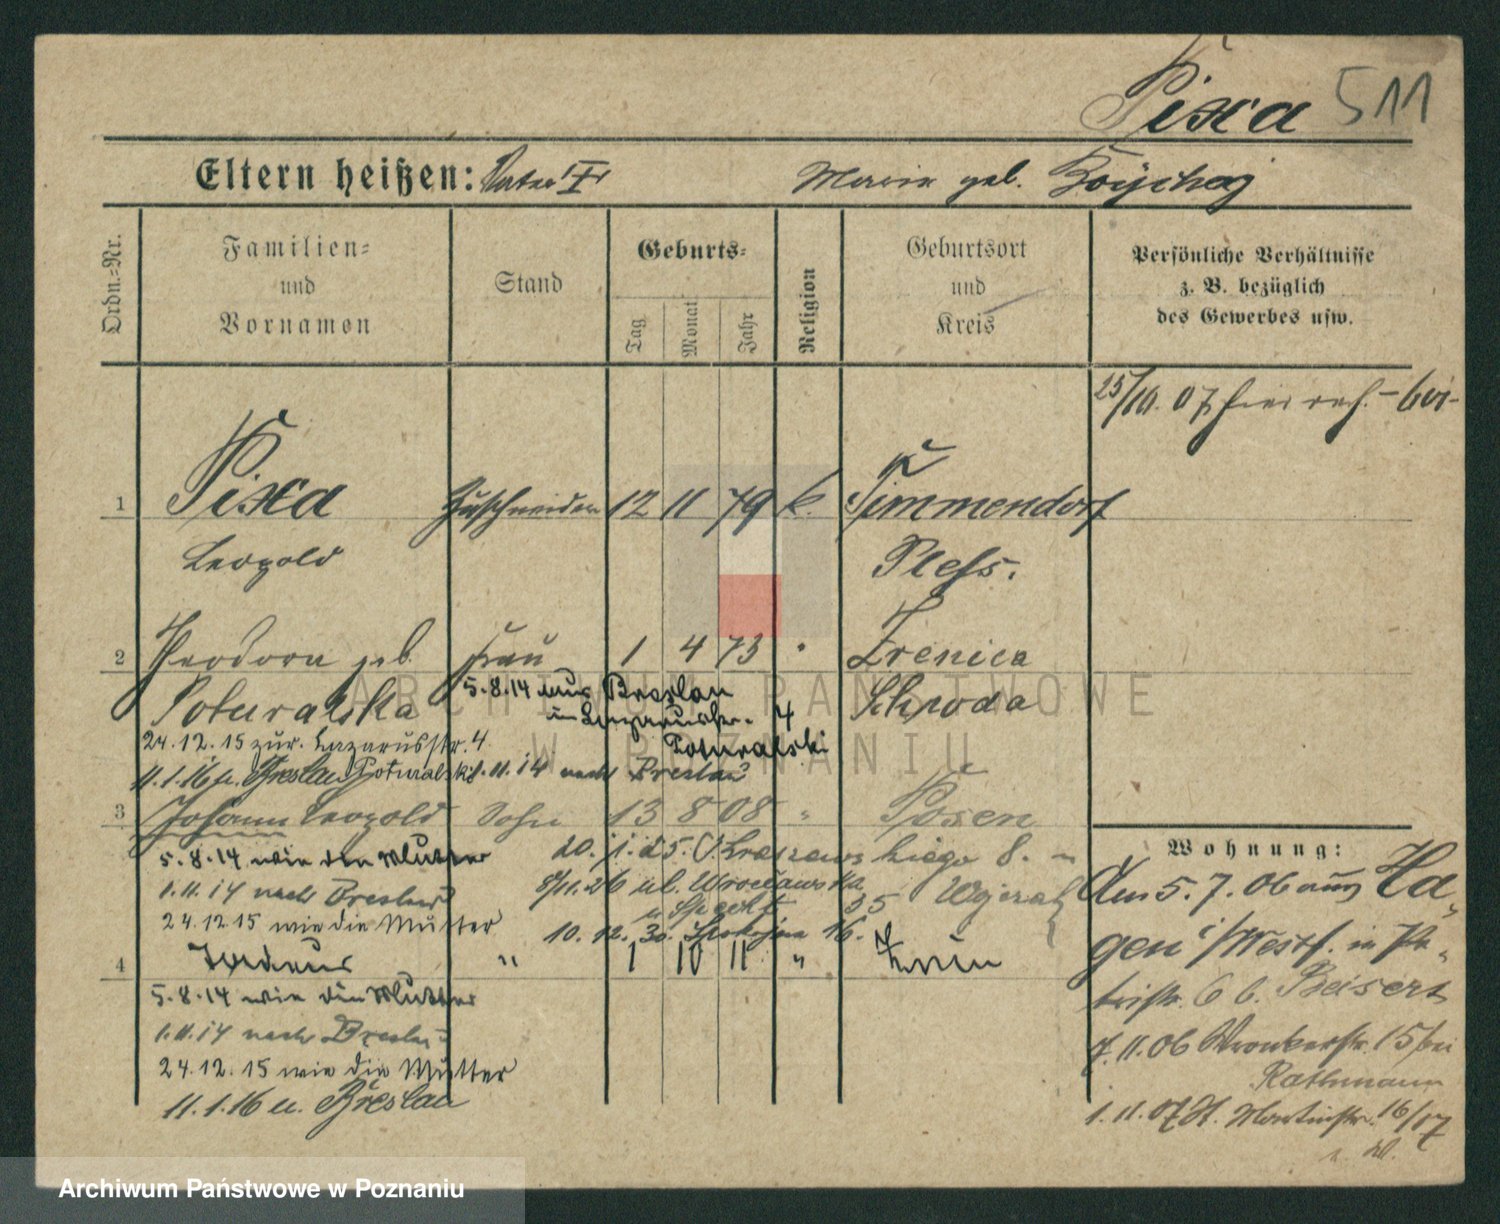 Pixa 511
Eltern heißen: Vater Maria geb.
Ordn.-Nr.
Familien- und Vornamen
Stand
Geburts-
Tag Monat Jahr
Religion
Geburtsort und Kreis
Persönliche Verhältnisse
z. B. bezüglich
des Gewerbes usw.
25/10. 07
1 Pixa Zuschneider 12 11 79 k. Timmendorf
Leopold Pless.
2 Theodora geb. Frau 1 4 73 " Zrenica
Poturalska Schroda
5.8.14 aus Breslau
in Lazarusstr. 4
Poturalski
24.12.15 zur. Lazarusstr. 4
11.1.16 n. Breslau Poturalski 1.11.14 nach Breslau
3 Johann Leopold Sohn 13 8 08 " Posen
5.8.14 wie die Mutter
1.11.14 nach Breslau
24.12.15 wie die Mutter
20. 1. 25.
8/11.26 ul. Wrocławska
35
10. 12. 30. Spokojna 16.
4 " 1 10 11 "
5.8.14 wie die Mutter
1.11.14 nach Breslau
24.12.15 wie die Mutter
11.1.16 n. Breslau
Wohnung:
Am 5.7.06 aus Ha-
gen i/Westf. in Pa-
tristr. 6 b. Beisert
7.11.06 Wronkerstr. 15 bei
Rathmann
1.11.07 St. Martinstr. 16/17
ARCHIWUM PAŃSTWOWE
W POZNANIU
Archiwum Państwowe w Poznaniu